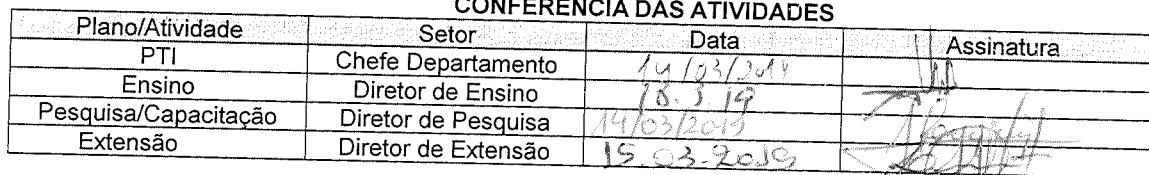 CONFERÊNCIA DAS ATIVIDADES
Plano/Atividade Setor Data Assinatura
PTI Chefe Departamento 14/03/2019
Ensino Diretor de Ensino 18.3.19
Pesquisa/Capacitação Diretor de Pesquisa 14/03/2019
Extensão Diretor de Extensão 15.03.2019